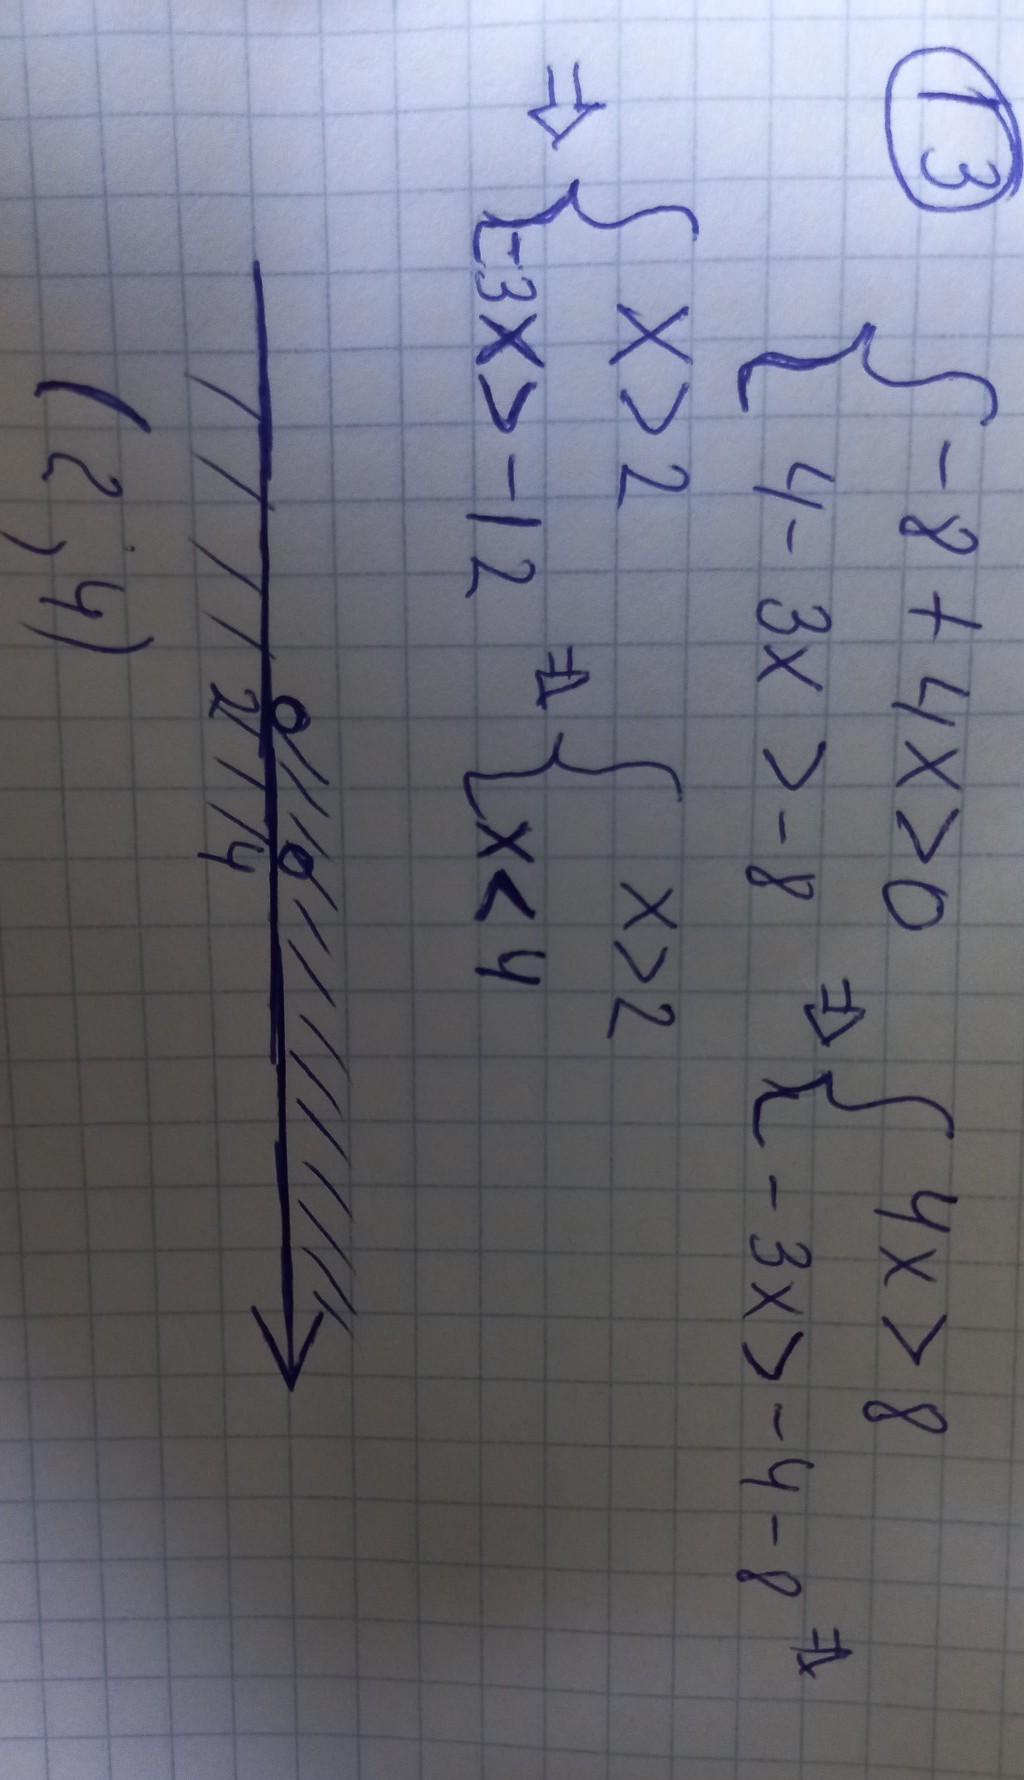 13
{ -8 + 4x > 0
{ 4 - 3x > -8
⇒ { 4x > 8
{ -3x > -4 - 8 ⇒
⇒ { x > 2
{ -3x > -12
⇒ { x > 2
{ x < 4
2 4
(2; 4)